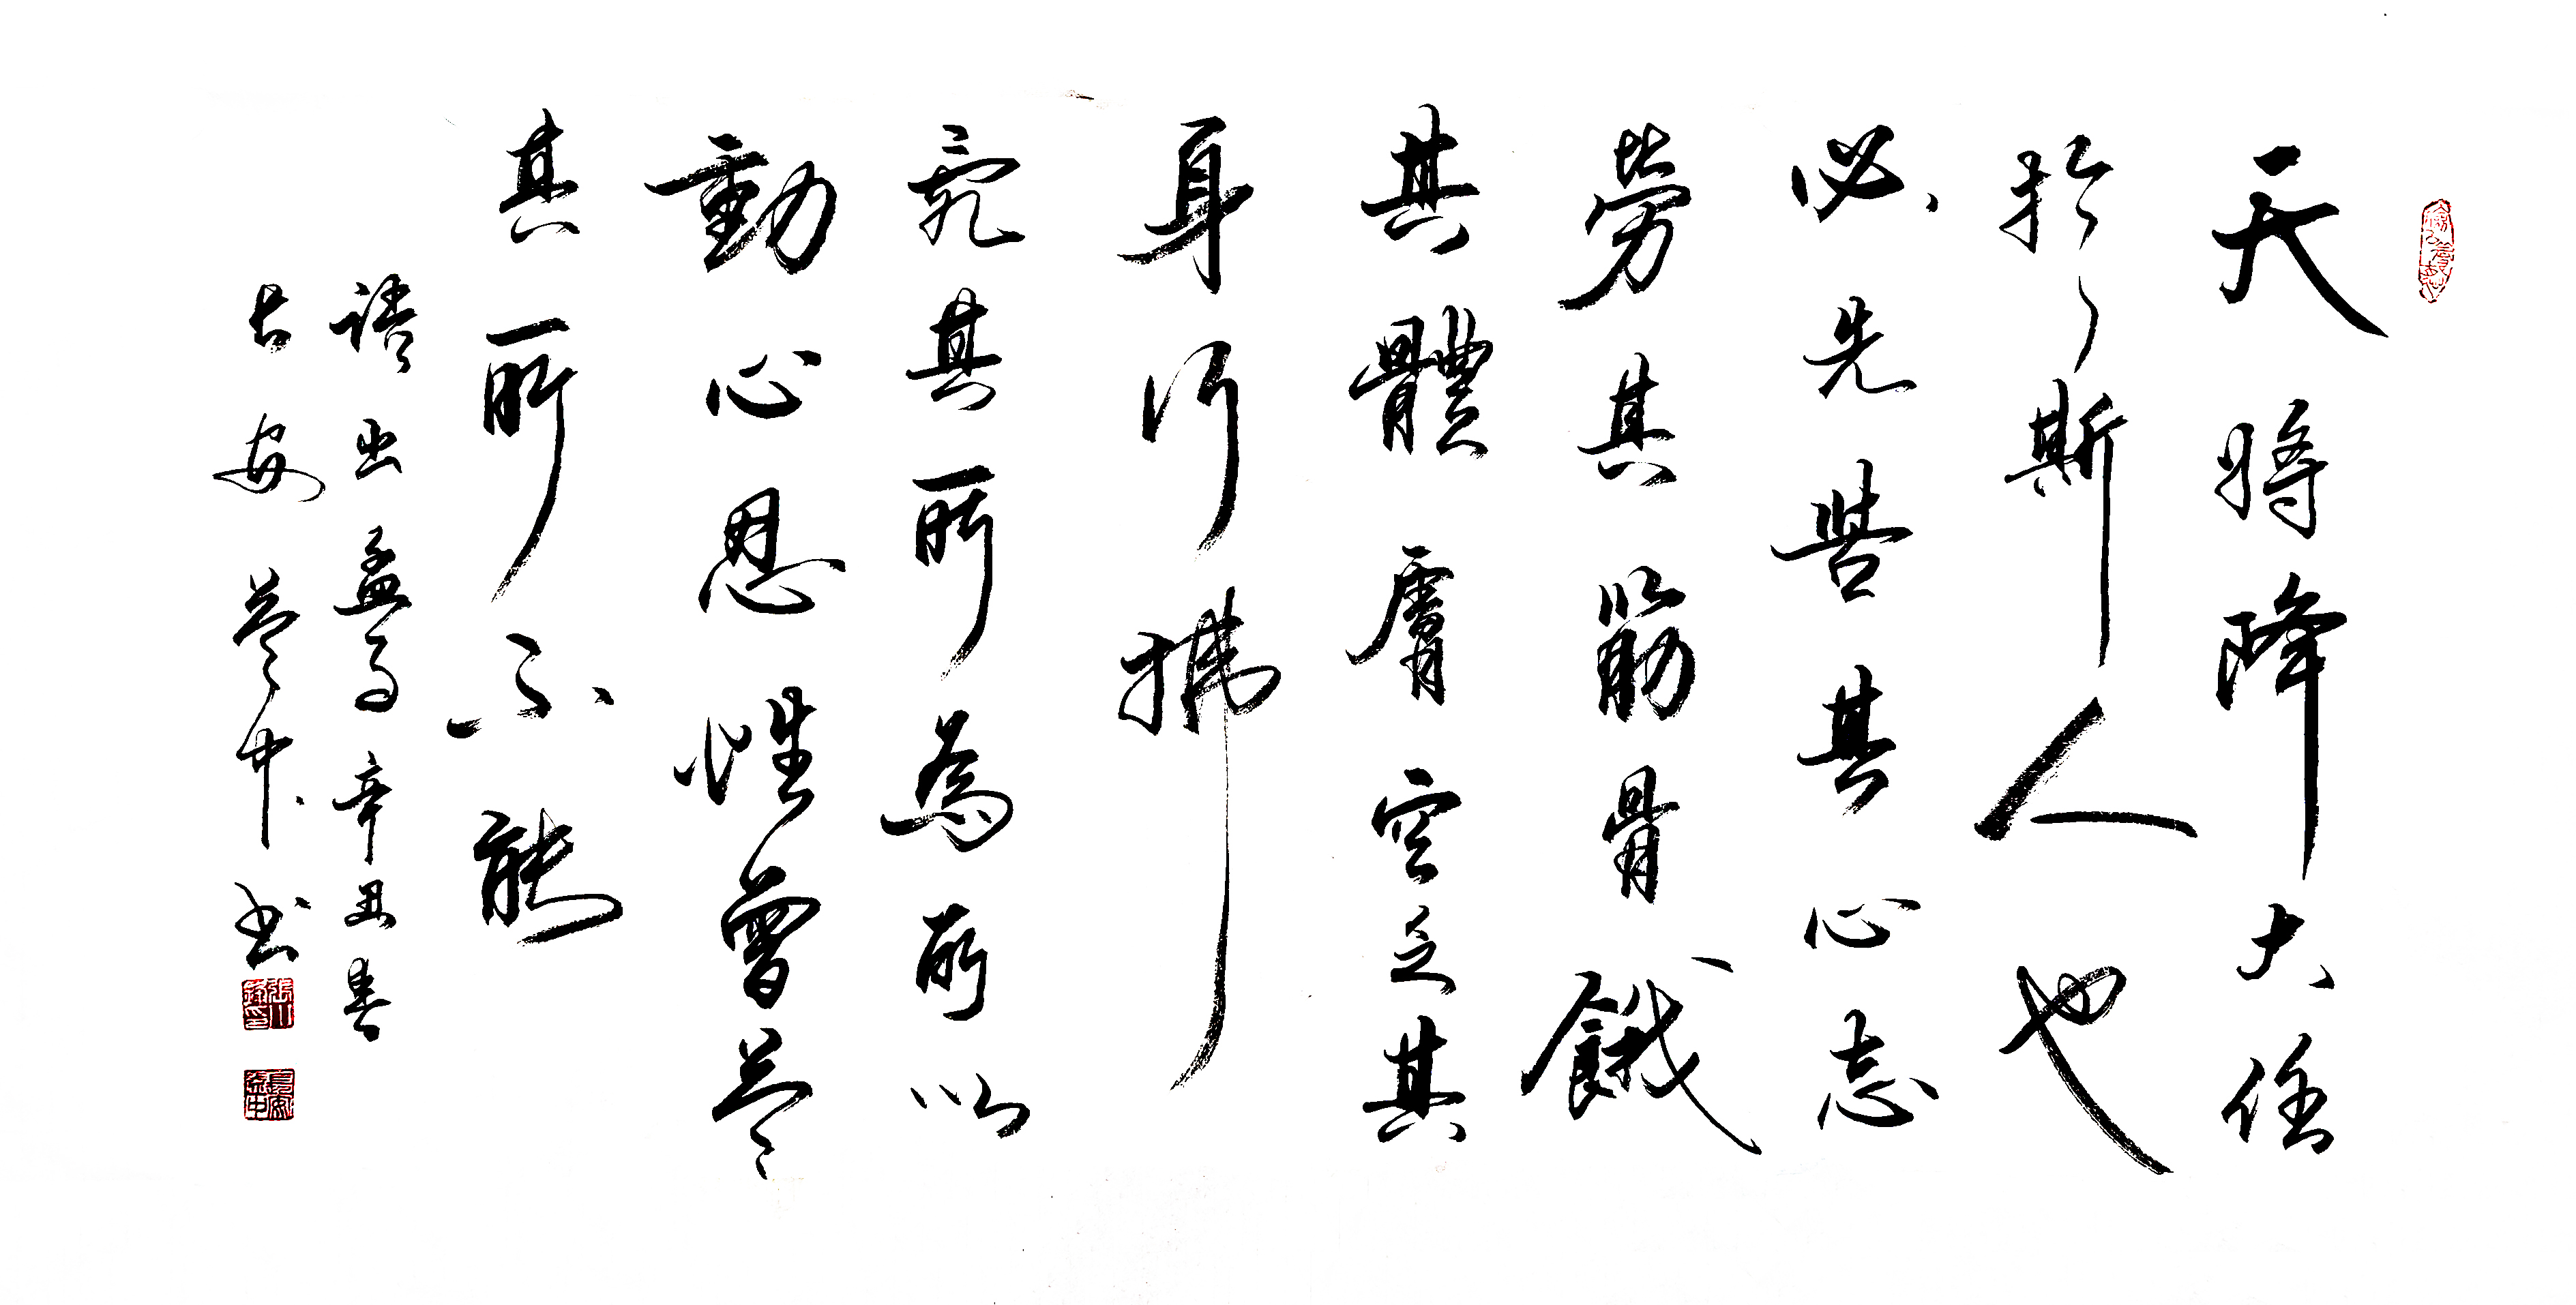 天將降大任
於斯人也
必先苦其心志
勞其筋骨餓
其體膚空乏其
身行拂
亂其所為所以
動心忍性曾益
其所不能
語出孟子辛丑春
长安益中书
長安益中